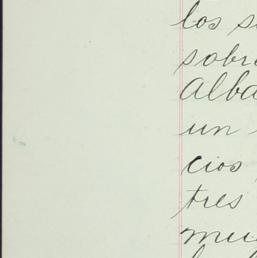 los s
sobr
Alba
un
cios
tres
mu